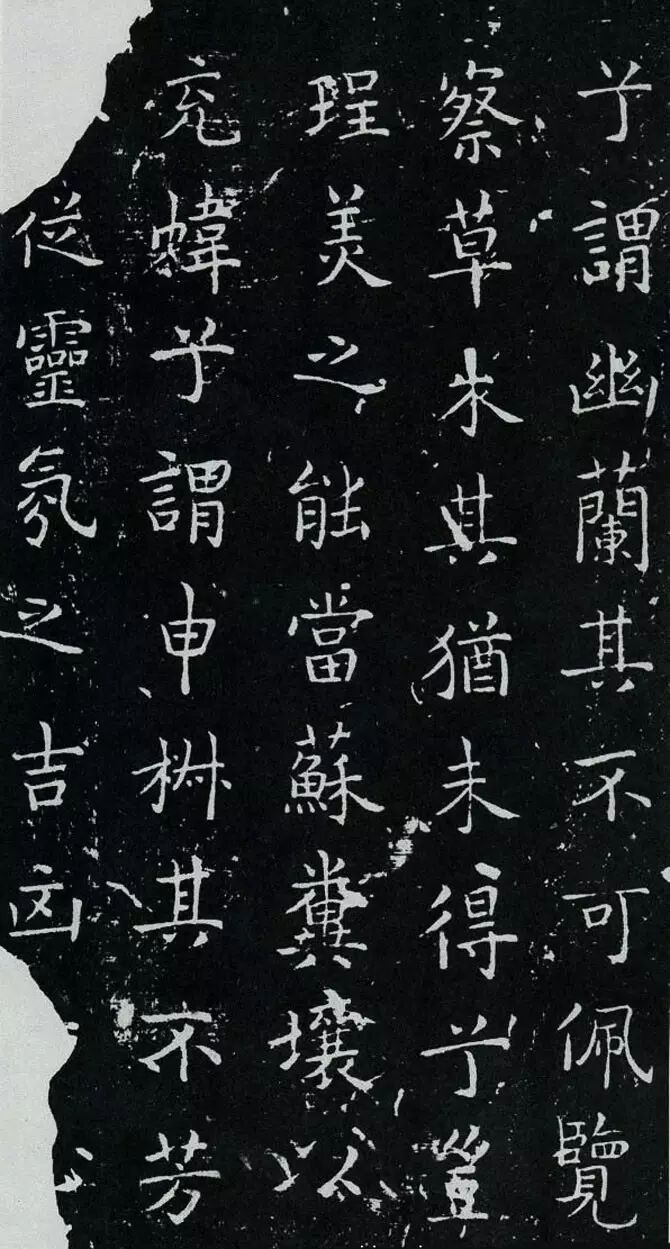 兮謂幽蘭其不可佩覽
察草木其猶未得兮豈
珵美之能當蘇糞壤以
充幃兮謂申椒其不芳
從靈氛之吉凶